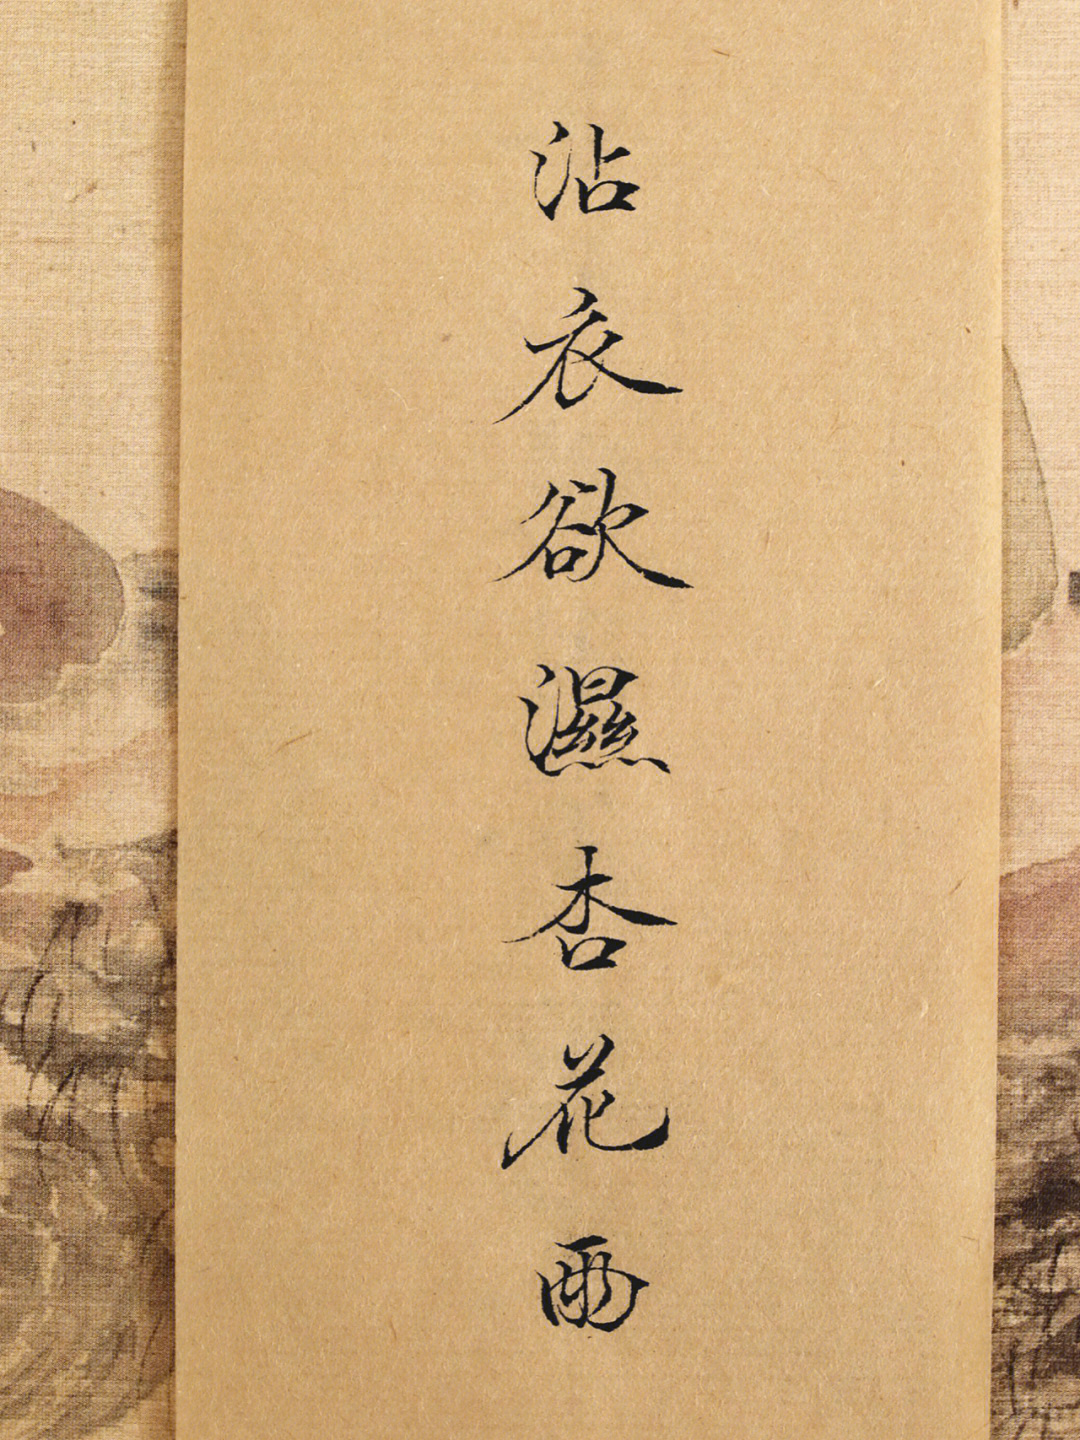 沾衣欲濕杏花雨